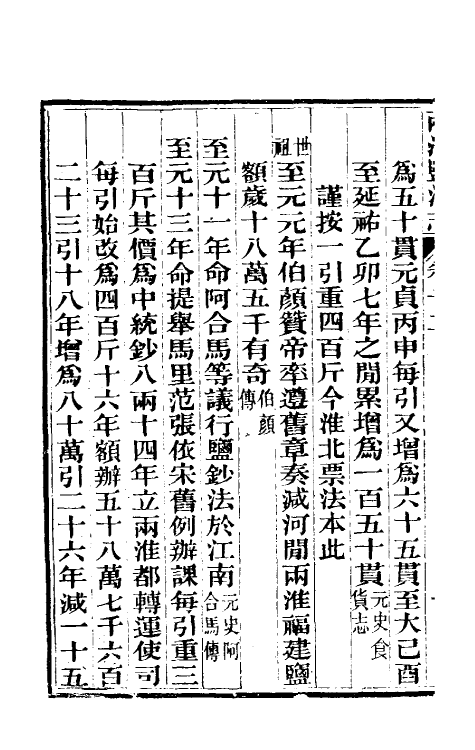 爲五十貫元貞丙申每引又增爲六十五貫至大己酉
至延祐乙卯七年之閒累增爲一百五十貫元史食貨志
謹按一引重四百斤今淮北票法本此
世祖至元元年伯顔贊帝率遵舊章奏减河閒兩淮福建鹽
額歲十八萬五千有奇伯顔傳
至元十一年命阿合馬等議行鹽鈔法於江南元史阿合馬傳
至元十三年命提舉馬里范張依宋舊例辦課每引重三
百斤其價爲中統鈔八兩十四年立兩淮都轉運使司
每引始改爲四百斤十六年額辦五十八萬七千六百
二十三引十八年增爲八十萬引二十六年减一十五